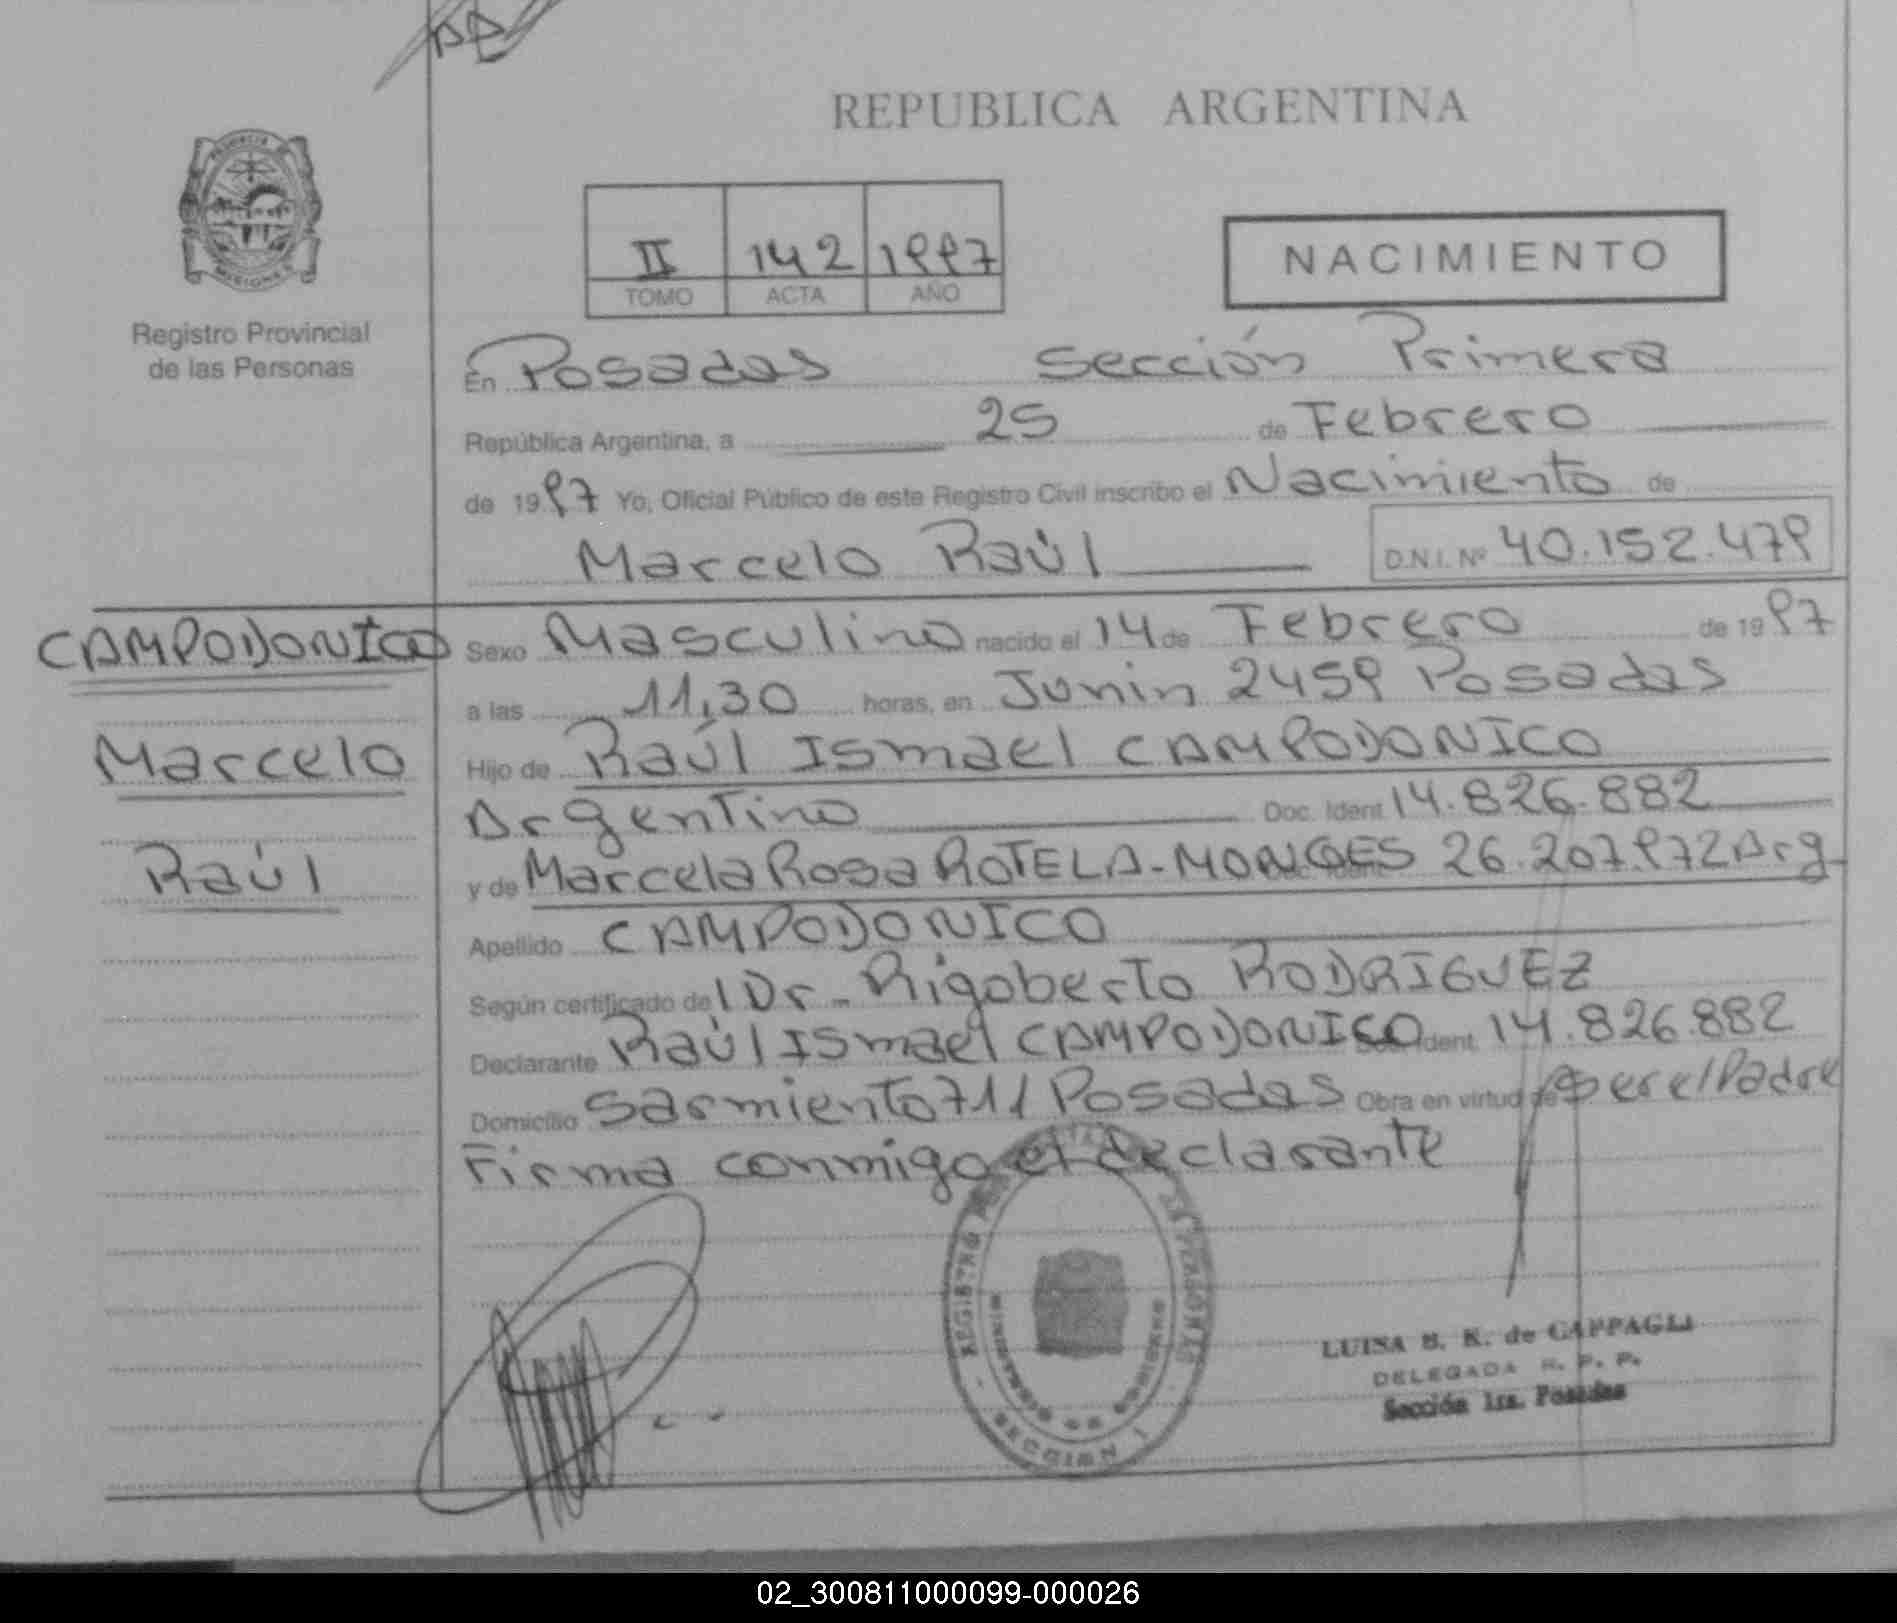 REPUBLICA ARGENTINA
II 142 1997
TOMO ACTA AÑO
NACIMIENTO
Registro Provincial
de las Personas
En Posadas Sección Primera
República Argentina, a 25 de Febrero
de 1997 Yo, Oficial Público de este Registro Civil inscribo el Nacimiento de
Marcelo Raúl D.N.I. Nº 40.152.479
CAMPODONICO
Marcelo
Raúl
Sexo Masculino nacido el 14 de Febrero de 1997
a las 11,30 horas, en Junin 2459 Posadas
Hijo de Raúl Ismael CAMPODONICO
Argentino Doc. Ident. 14.826.882
y de Marcela Rosa ROTELA-MONGES 26.207.972 Arg
Apellido CAMPODONICO
Según certificado del Dr. Rigoberto RODRIGUEZ
Declarante Raúl Ismael CAMPODONICO Doc. Ident. 14.826.882
Domicilio Sarmiento 711 Posadas Obra en virtud de ser el Padre
Firma conmigo el declarante
LUISA B. K. de CAPPAGLI
DELEGADA R. P. P.
Sección 1ra. Posadas
SECCION 1
02_300811000099-000026